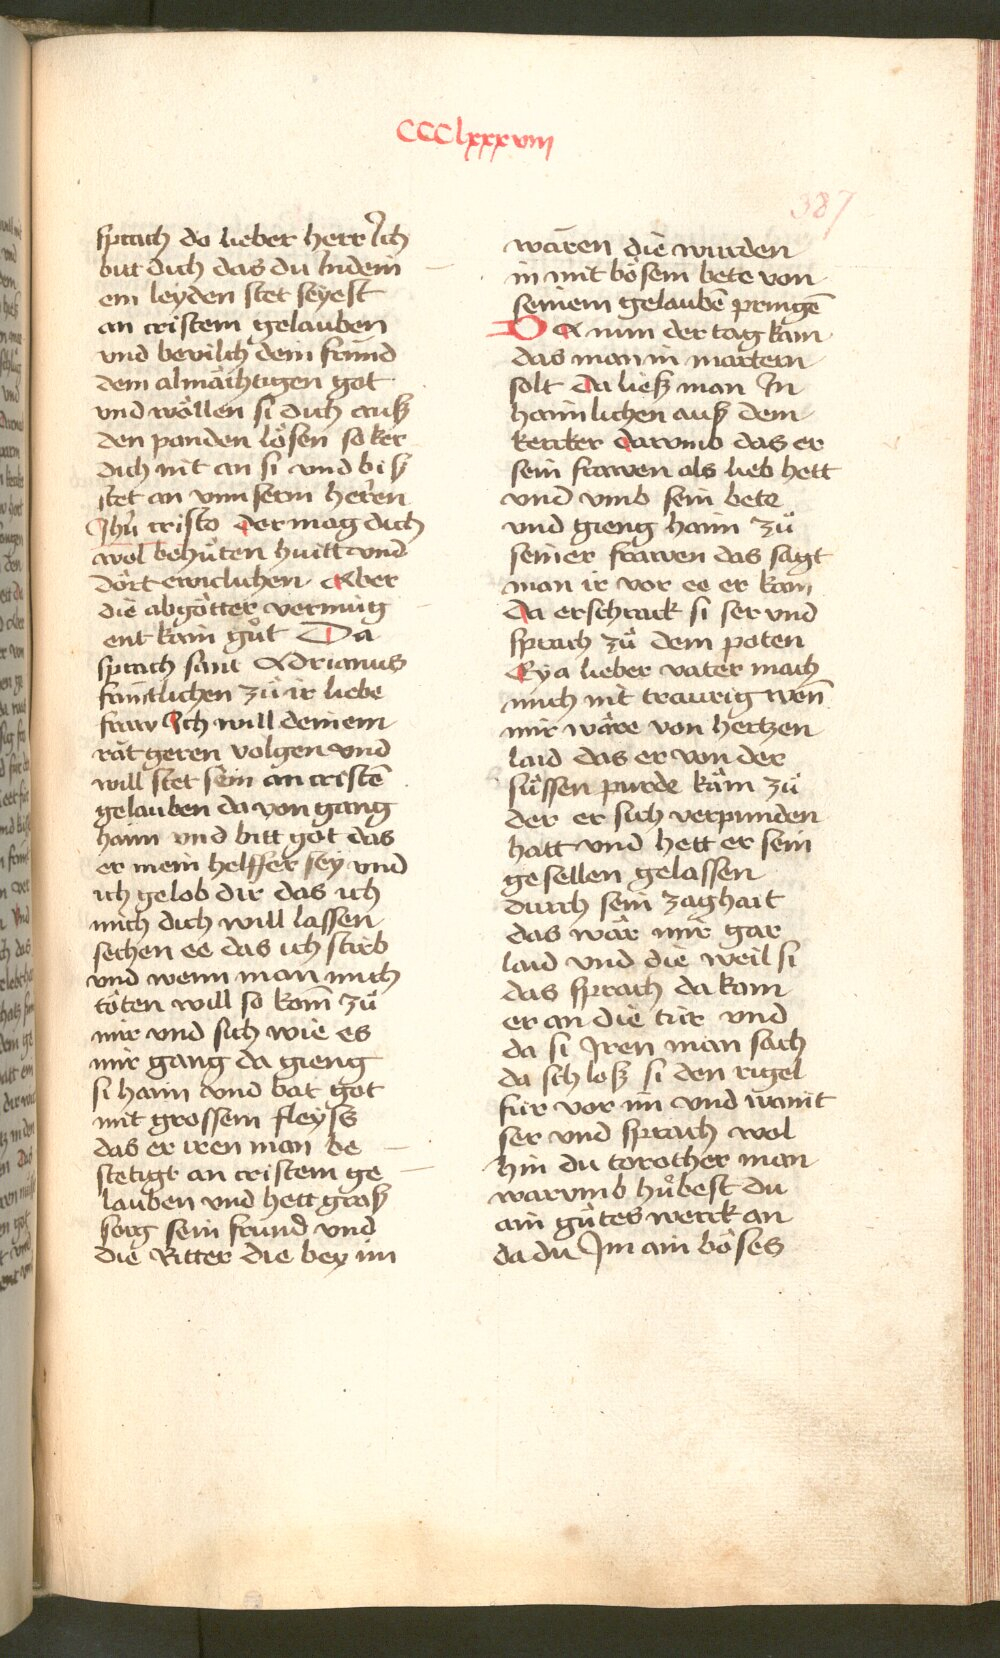 CCClxxxviij
387
sprach do lieber herr Ich
bitt dich das du Indem
em leyden stet seyest
an cristem gelauben
vnd bevilch dein frúnd
dem almåchtigen got
vnd wöllen si dich auß
den panden lösen so ker
dich nit an si vnd biß
stet an vnnserm herren
Jhu cristo der mag dich
wol behůten huitt vnd
dört ewiclichen Aber
die abgötter vermúg
ent kain gůt Da
sprach sant Adrianus
frúntlichen zů ir liebe
fraw Ich will deinem
råt geren volgen vnd
will stet sein an cristē
gelauben da von gang
haim vnd bitt got das
er mein helffer sey vnd
ich gelob dir das ich
mich dich will lassen
sechen ee das ich stirb
vnd wenn man mich
töten will so kom̄ zů
mir vnd sich wie es
mir gang da gieng
si haim vnd bat got
mit grossem fleyss
das er iren man be
stetigt an cristem ge
lauben vnd hett groß
sorg sein frúnd vnd
die Ritter die bey im
waren die wurden
in mit bösem bete von
seinem gelaubē pringē
DA nun der tag kam
das man in martern
solt da ließ man In
haimlichen auß dem
kercker darvmb das er
sein frawen als lieb hett
vnd vmb sein bete
vnd gieng haim zů
seiner frawen das sagt
man ir vor ee er kom
Da erschrack si ser vnd
sprach zů dem poten
Eya lieber vater mach
mich nit traurig wen̄
mir wåre von hertzen
laid das er von der
sůssen purde kåm zů
der er sich verpunden
hatt vnd hett er sein
gesellen gelassen
durch sein zaghait
das wår mir gar
laid vnd die weil si
das sprach da kam
er an die túr vnd
da si Iren man sach
da schloß si den rigel
fúr vor im vnd wainit
ser vnd sprach wol
hin du torother man
warvmb hůbest du
ain gůtes werck an
da du Im ain böses